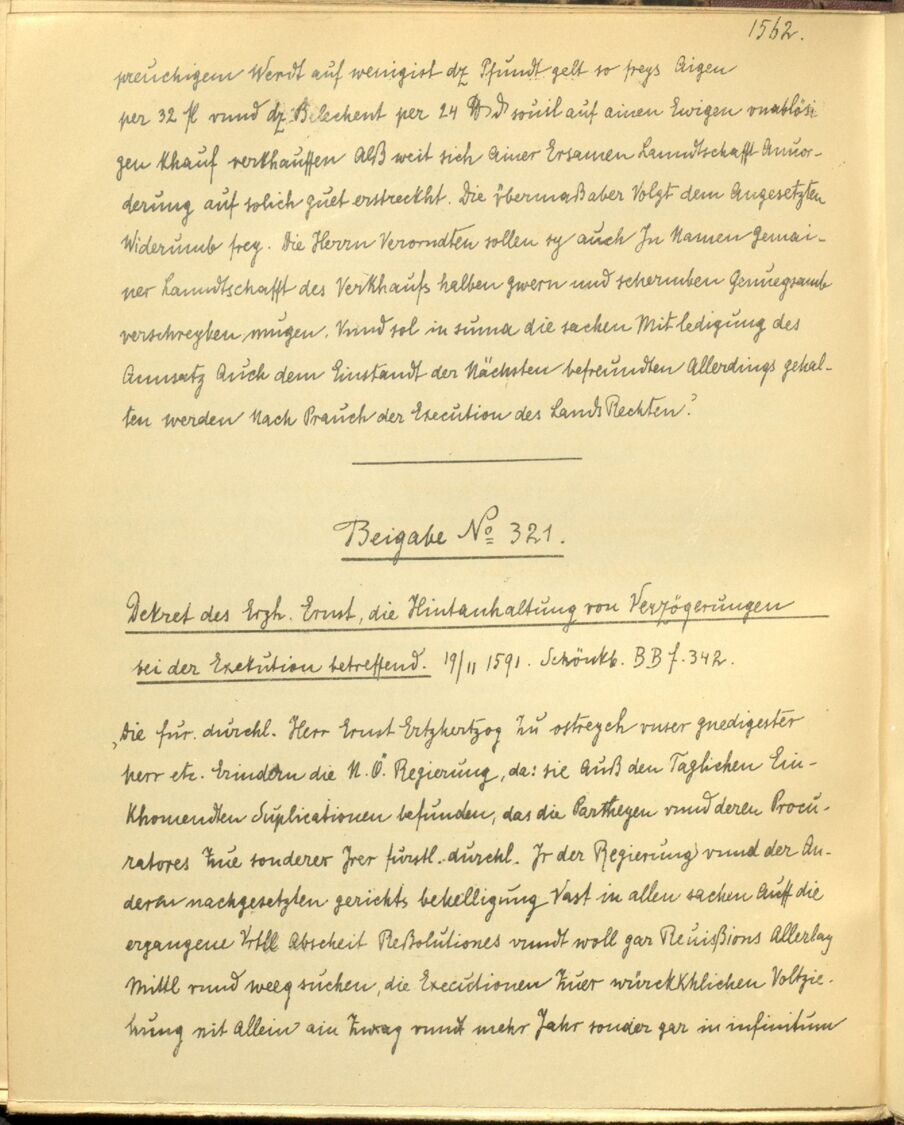 1562.
preuchigem Werdt auf wenigist dz Pfundt gelt so freys Aigen
per 32 fl vnnd dz Belechent per 24 ₰ souil auf ainen Ewigen vnablösi
gen Khauf verkhauffen Alß weit sich Ainer Ersamen Lanndtschafft Anuor-
derung auf solich guet erstreckht. Die ÿbermaß aber Volgt dem Angesetzten
Widerumb frey. Die Herrn Verorndten sollen sy auch In Namen Gemai-
ner Lanndtschafft des Verkhaufs halben gwern und schermben Genuegsamb
verschreyben mugen. Vnnd sol in suma die sachen Mit ledigung des
Annsatz Auch dem Einstandt der Nächsten befreundten Allerdings gehal-
ten werden Nach Prauch der Execution des LandsRechten.“
Beigabe No 321.
Dekret des Erzh. Ernst, die Hintanhaltung von Verzögerungen
bei der Exekution betreffend. 19/11 1591. Schönkb. B B f. 342.
„Die für. durchl. Herr Ernst Ertzhertzog Zu ostreych vnser gnedigester
herr etc. Erindern die N. Ö. Regierung, da: sie Auß den Täglichen Ein-
Khomendten Suplicationen befunden, das die Partheyen vnnd deren Procu-
ratores Zue sonderer Irer fürstl. durchl. Ir der Regierung vnnd der An-
dern nachgesetzten gerichts behelligung Vast in allen sachen Auff die
ergangene Vrtll Abscheit Reßolutiones vnndt woll gar Reuißions Allerlay
Mittl vnnd weeg suchen, die Executionen Zuer würckKhlichen Voltzie-
hung nit Allein ain Zway vnnd mehr Jahr sonder gar in infinitum